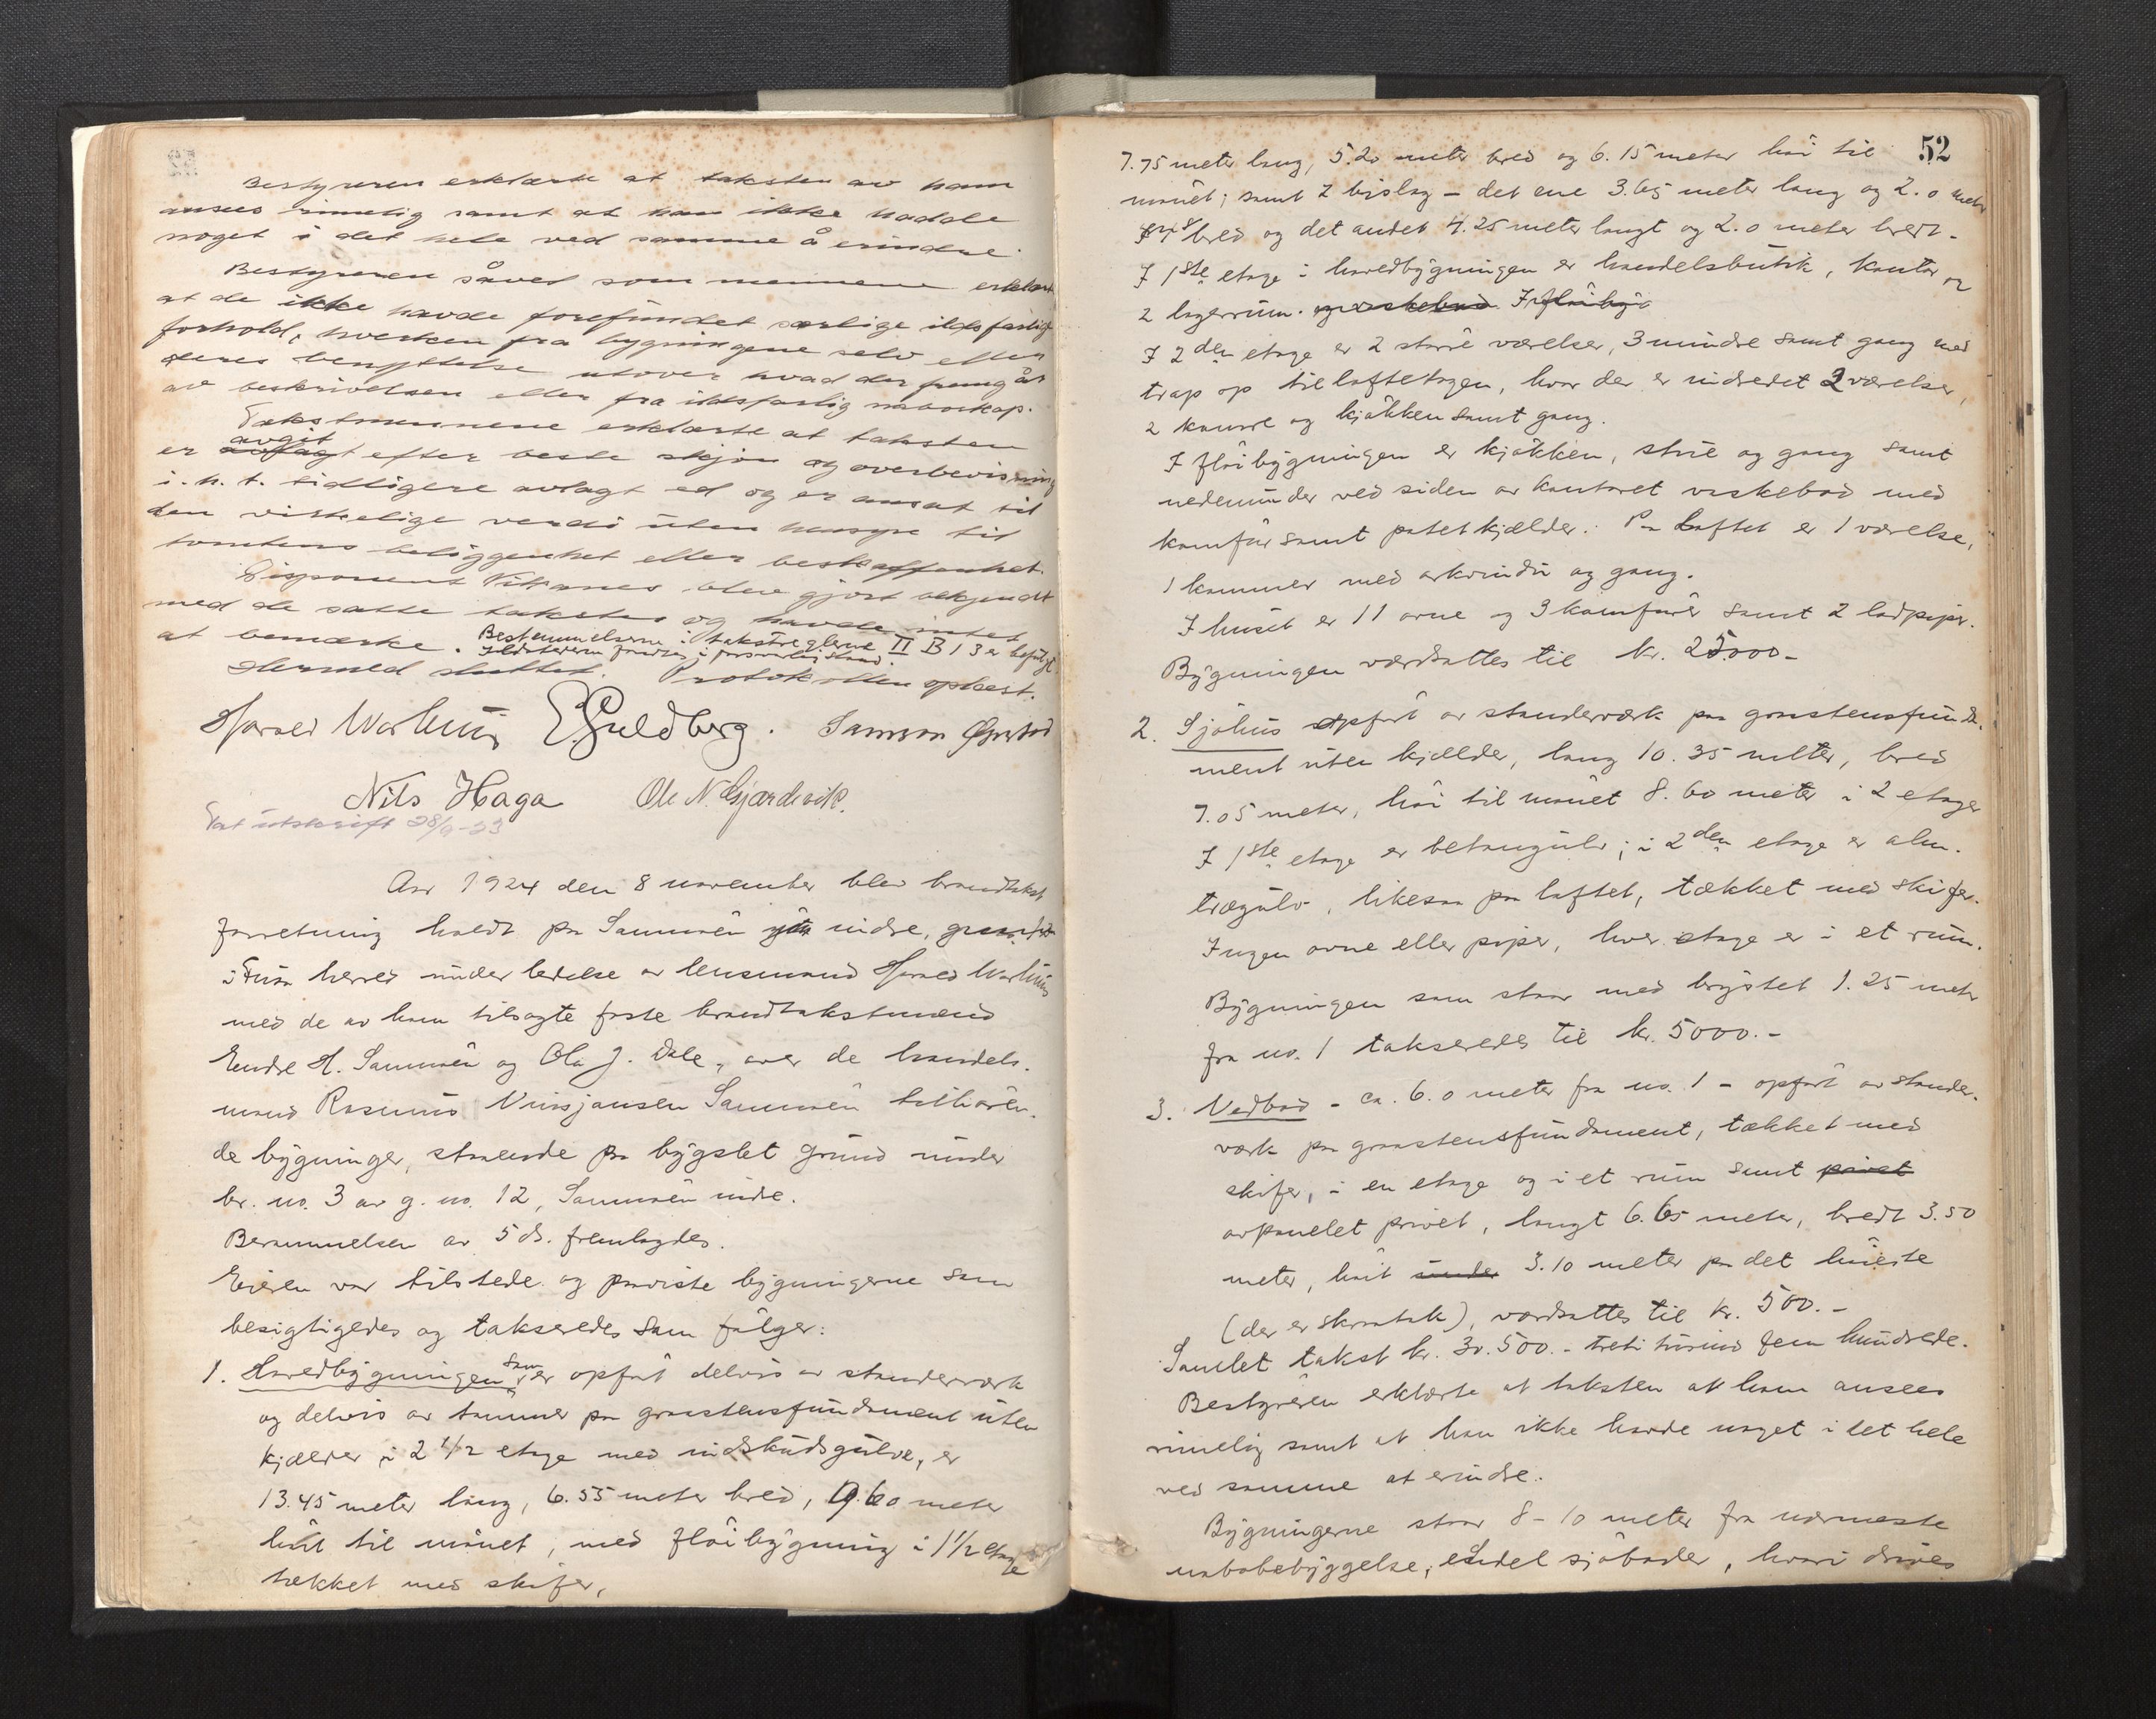 Bestyreren erklærte at taksten av ham
ansees rimelig samt at han ikke hadde
noget i det hele ved samme å erindre.
Bestyreren såvel som mennene erklært
at de ikke havde forefundet særlige ildsfarlige
forhold, hverken fra bygningene selv eller
deres benyttelse utover hvad der fremgår
av beskrivelsen eller fra ildsfarlig naboskap.
Takstmennene erklærte at taksten
avgit
er avlagt efter beste skjøn og overbevisning
i.h.t. tidligere avlagt ed og er ansat til
den virkelige verdi uten hensyn til
tomtens beliggenhet eller beskaffenhet.
Disponent Vikanes blev gjort bekjendt
med de satte takster og havde intet
at bemerke. Bestemmelserne i takstreglerne II B 13 er befulgt
Ildstederne i forsvarlig stand.
Hermed sluttet. Protokollen oplæst.
Harald Warhuus EGuldberg. Samson
Nils Haga Ole N. Gjærdevik.
Tat utskrift 28/9-23
Aar 1924 den 8 november blev brandtakst
forretning holdt på Samnøen ytre indre,
i Fusa herred under ledelse av lensmand Harald Warhuus
med de av ham tilsagte faste brandtakstmænd
Endre H. Samnøen og Ola J. Dale, over de handels-
mand Rasmus Samnøen tilhøren-
de bygninger, staaende paa bygslet grund under
br. no. 3 av g. no. 12, Samnøen indre.
Berammelsen av 5 ds. fremlagdes.
Eieren var tilstede og paaviste bygningerne som
besigtigedes og takseredes som følger:
1. Hovedbygningen som er opført delvis av standerværk
og delvis av tømmer paa graastensfundament uten
kjælder i 2 1/2 etage med indskudsgulve, er
13.45 meter lang, 6.55 meter bred, 9.60 meter
høit til mønet, med fløibygning i 1 1/2 etage
tækket med skifer,
52
7.75 meter lang, 5.20 meter bred og 6.15 meter høi til
mønet; samt 2 bislag - det ene 3.65 meter lang og 2.0 meter
bred og det andet 4.25 meter langt og 2.0 meter bredt.
I 1ste etage i hovedbygningen er handelsbutik, kontor og
2 lagerrum. og vaskebod I fløibyg
I 2den etage er 2 større værelser, 3 mindre samt gang med
trap op til loftetagen, hvor der er indredet 2 værelser,
2 kamre og kjøkken samt gang.
I fløibygningen er kjøkken, stue og gang samt
nedenunder ved siden av kontoret vaskebod med
komfur samt potetkjælder. Paa loftet er 1 værelse,
1 kammer med arkvindu og gang.
I huset er 11 ovne og 3 komfurer samt 2 lodpiper.
Bygningen værdsattes til kr. 25000-
2. Sjøhus opført av standerværk paa graastensfunda-
ment uten kjælder, lang 10.35 meter, bred
7.05 meter, høi til mønet 8.60 meter i 2 etager
I 1ste etage er betongulv; i 2den etage er alm.
trægulv, likesaa paa loftet, tækket med skifer.
Ingen ovne eller piper, hver etage er i et rum.
Bygningen som staar med brystet 1.25 meter
fra no. 1 takseredes til kr. 5000.-
3. Vedbod - ca. 6.0 meter fra no. 1 - opført av stander-
værk paa graastensfundament, tækket med
skifer, i en etage og i et rum samt privet
avpanelet privet, langt 6.65 meter, bredt 3.50
meter, høit under 3.10 meter paa det høieste
(der er skraatak), værdsattes til kr. 500.-
Samlet takst kr. 30.500.- treti tusind fem hundrede.
Bestyreren erklærte at taksten at ham ansees
rimelig samt at han ikke havde noget i det hele
ved samme at erindre.
Bygningerne staar 8-10 meter fra nærmeste
nabobebyggelse, endel sjøboder, hvori drives